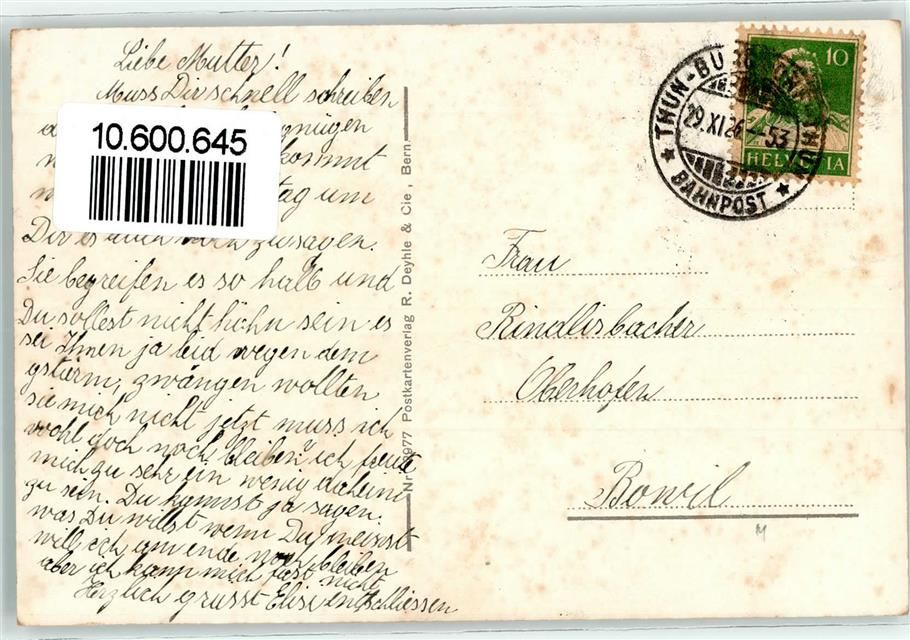 Liebe Mutter!
Muss Dir schnell schreiben
10.600.645
kommt
tag um
Dir es auch noch zusagen.
Sie begreifen es so halb und
Du sollest nicht höhn sein es
sei Ihnen ja leid wegen dem
gstürm, zwängen wollten
sie mich nicht jetzt muss ich
wohl doch noch bleiben, ich freute
mich zu sehr ein wenig daheim
zu sein. Du kannst ja sagen.
was Du willst wenn Du meinst
will ich am ende noch bleiben
aber ich kann mich fast nicht
Herzlich grüsst Elisi entschliessen
Postkartenverlag R. Deyhle & Cie, Bern
THUN-BU
29.XI.26
53
BAHNPOST
10
HELVETIA
Frau
Rindlisbacher
Oberhofen
Bowil